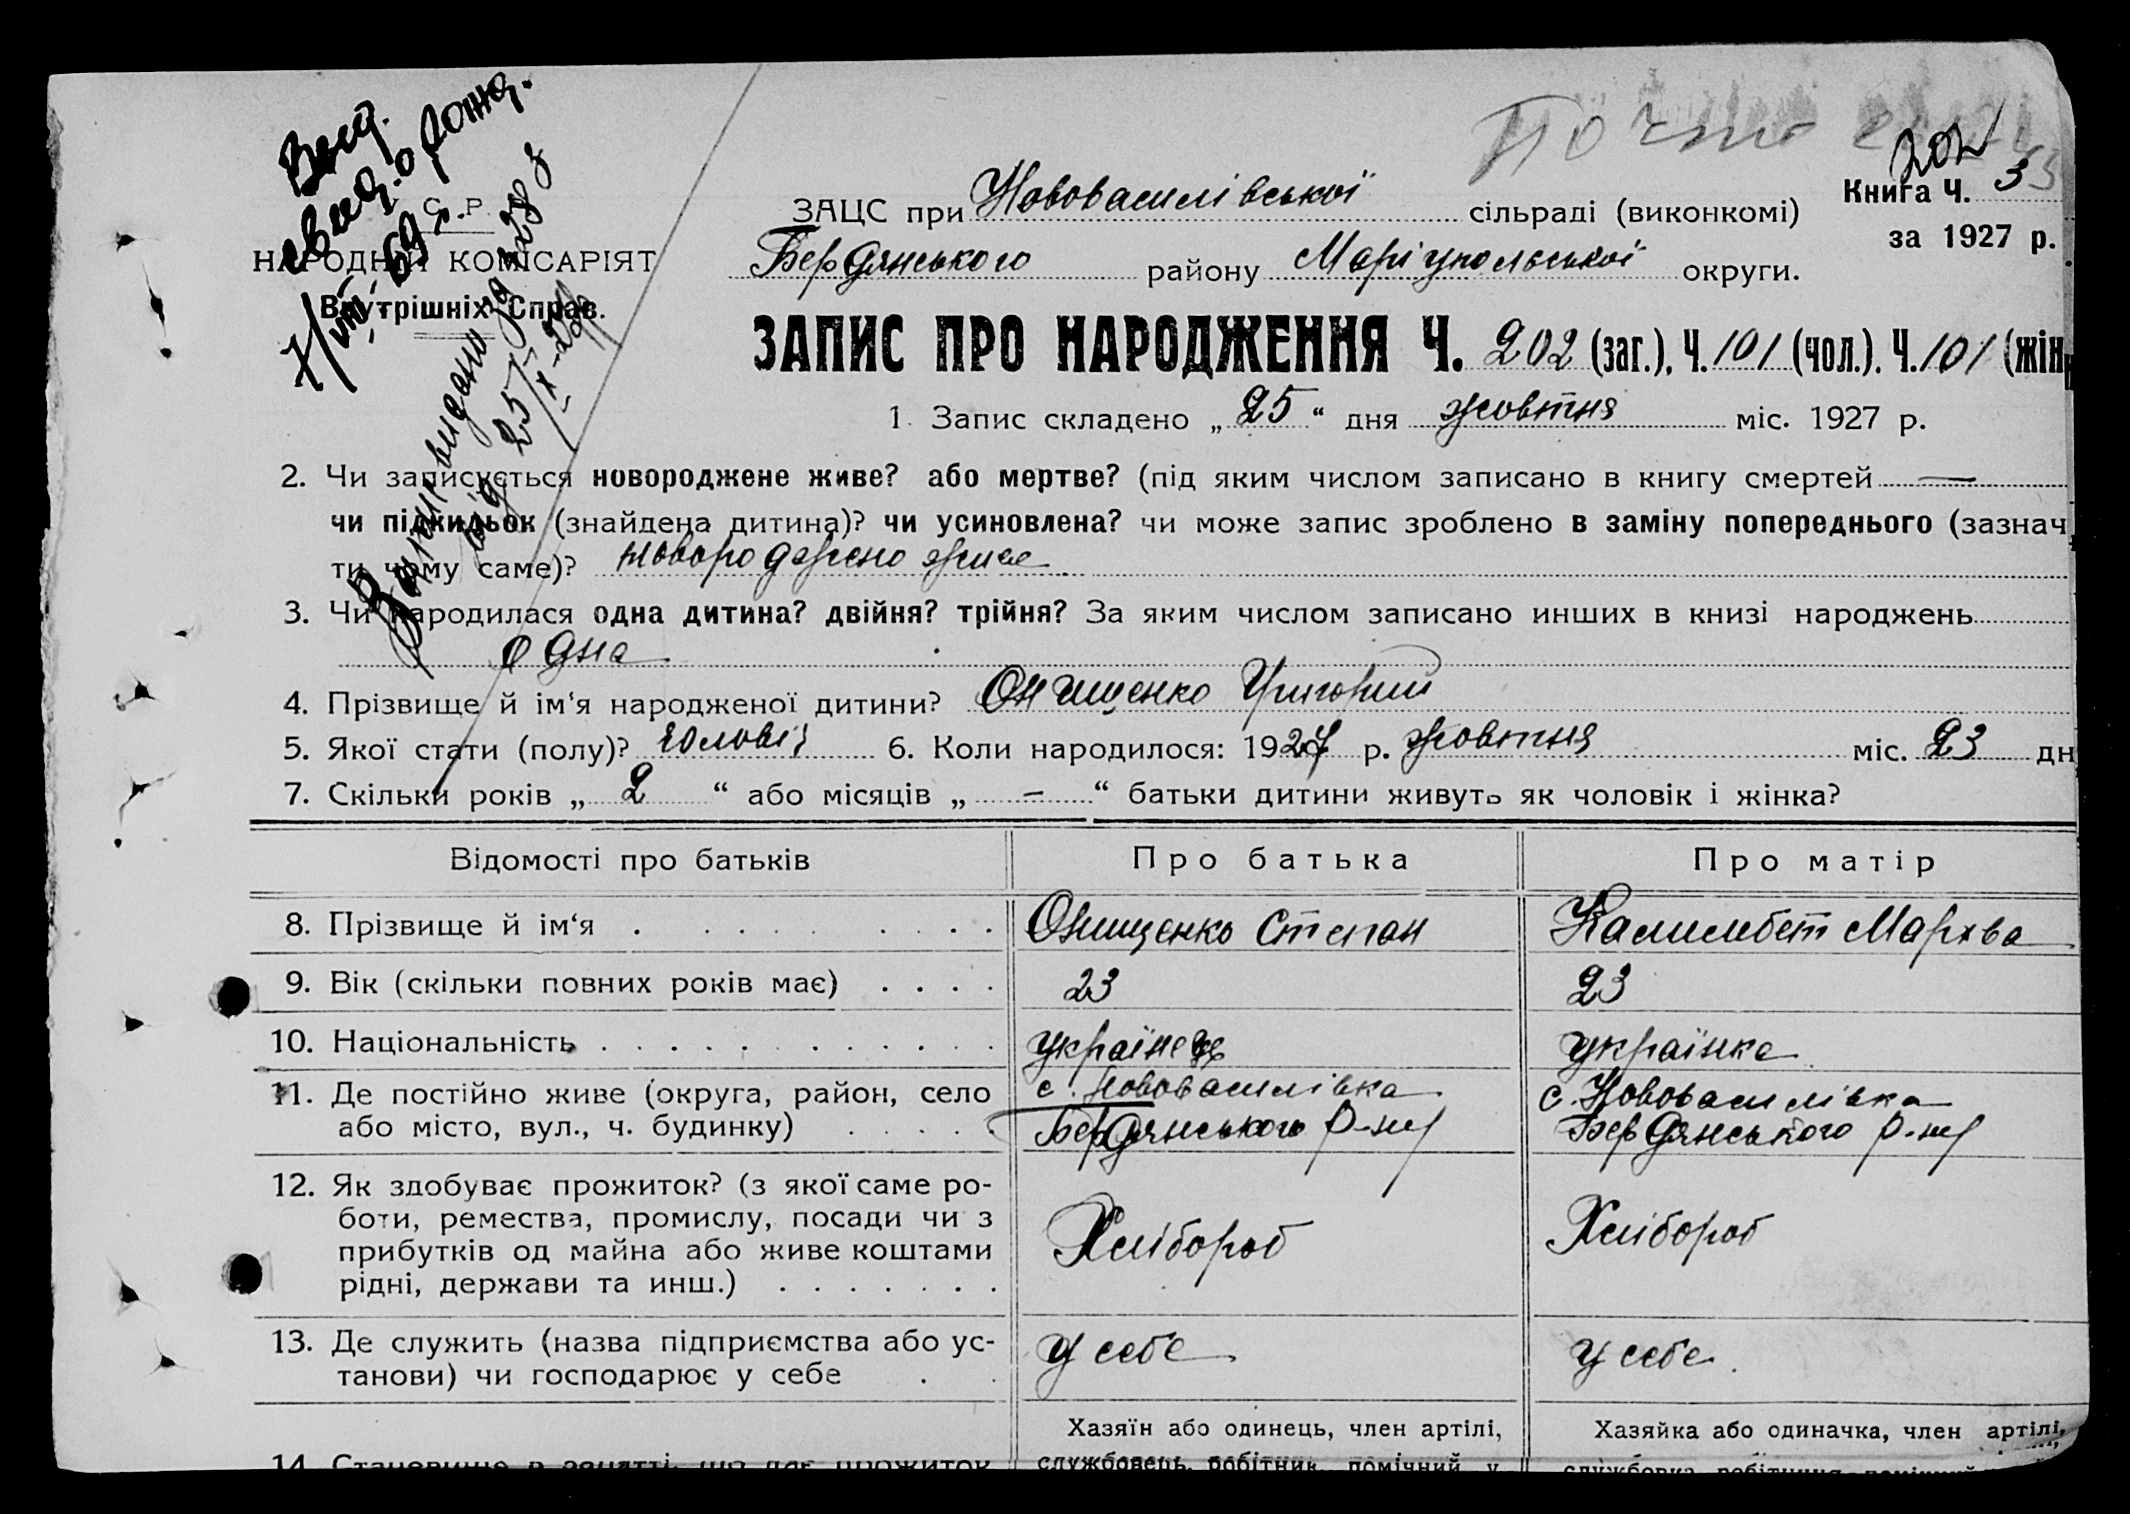 Выд.
свид. о рожд.
7/VIII 69 г.
Почто
202
У. С. Р. Р.
НАРОДНІЙ КОМІСАРІЯТ
Внутрішніх Справ.
Витяг видано
від 25/
ЗАЦС при Нововасилівської сільраді (виконкомі)
Книга Ч. 3
за 1927 р.
Бердянського району Маріупольської округи.
ЗАПИС ПРО НАРОДЖЕННЯ Ч. 202 (заг.), Ч. 101 (чол.). Ч. 101 (жін
1. Запис складено „ 25 “ дня жовтня міс. 1927 р.
2. Чи записується новороджене живе? або мертве? (під яким числом записано в книгу смертей —
чи підкидьок (знайдена дитина)? чи усиновлена? чи може запис зроблено в заміну попереднього (зазнач
ти чому саме)? новороджено живе
3. Чи народилася одна дитина? двійня? трійня? За яким числом записано инших в книзі народжень
одна
4. Прізвище й ім‘я народженої дитини? Онищенко Григорий
5. Якої стати (полу)? чоловіч 6. Коли народилося: 1927 р. жовтня міс. 23 дн
7. Скільки років „ 2 “ або місяців „ — “ батьки дитини живуть як чоловік і жінка?
Відомості про батьків Про батька Про матір
8. Прізвище й ім‘я Онищенко Степан Калимбет Мархва
9. Вік (скільки повних років має) 23 23
10. Національність українець українка
11. Де постійно живе (округа, район, село с. Нововасилівка с. Нововасилівка
або місто, вул., ч. будинку) Бердянського р-ну Бердянського р-ну
12. Як здобуває прожиток? (з якої саме ро-
боти, ремества, промислу, посади чи з Хлібороб Хлібороб
прибутків од майна або живе коштами
рідні, держави та инш.)
13. Де служить (назва підприємства або ус- у себе у себе
танови) чи господарює у себе
Хазяїн або одинець, член артілі, Хазяйка або одиначка, член артілі,
14. Становище в занятті, що дає прожиток службовець, робітник, помічний у службовка, робітниця, помічний